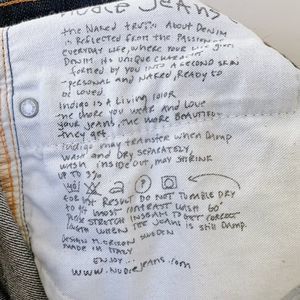 NUDIE JEANS
the NAKED truth About DENIM
is Reflected from the Passion
EVERYDAY LIFE, where YOUR LIFE gives
DENIM its UNIQUE CHARACTER
formed by you INTO A SECOND SKIN
- PERSONAL and NAKED, READY to
be loved
Indigo is A Living color
the more you wear and Love
your Jeans, the more beautiful
they get.
Indigo may transfer when DAMP
WASH and DRY SEPARATELY,
WASH inside out, MAY SHRINK
UP to 3%
for best Result DO NOT tumble DRY
for most contrast WASH 60°
Please stretch INSEAM to get correct
length when the Jeans is still DAMP.
DESIGN M. ERIXON SWEDEN
MADE IN ITALY
ENJOY...
www.NudieJeans.com